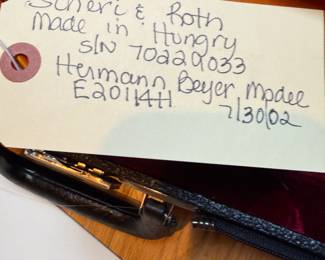 Scherl & Roth
Made in Hungry
S/N 70220033
Hermann Beyer Model
E201144H
7/30/02